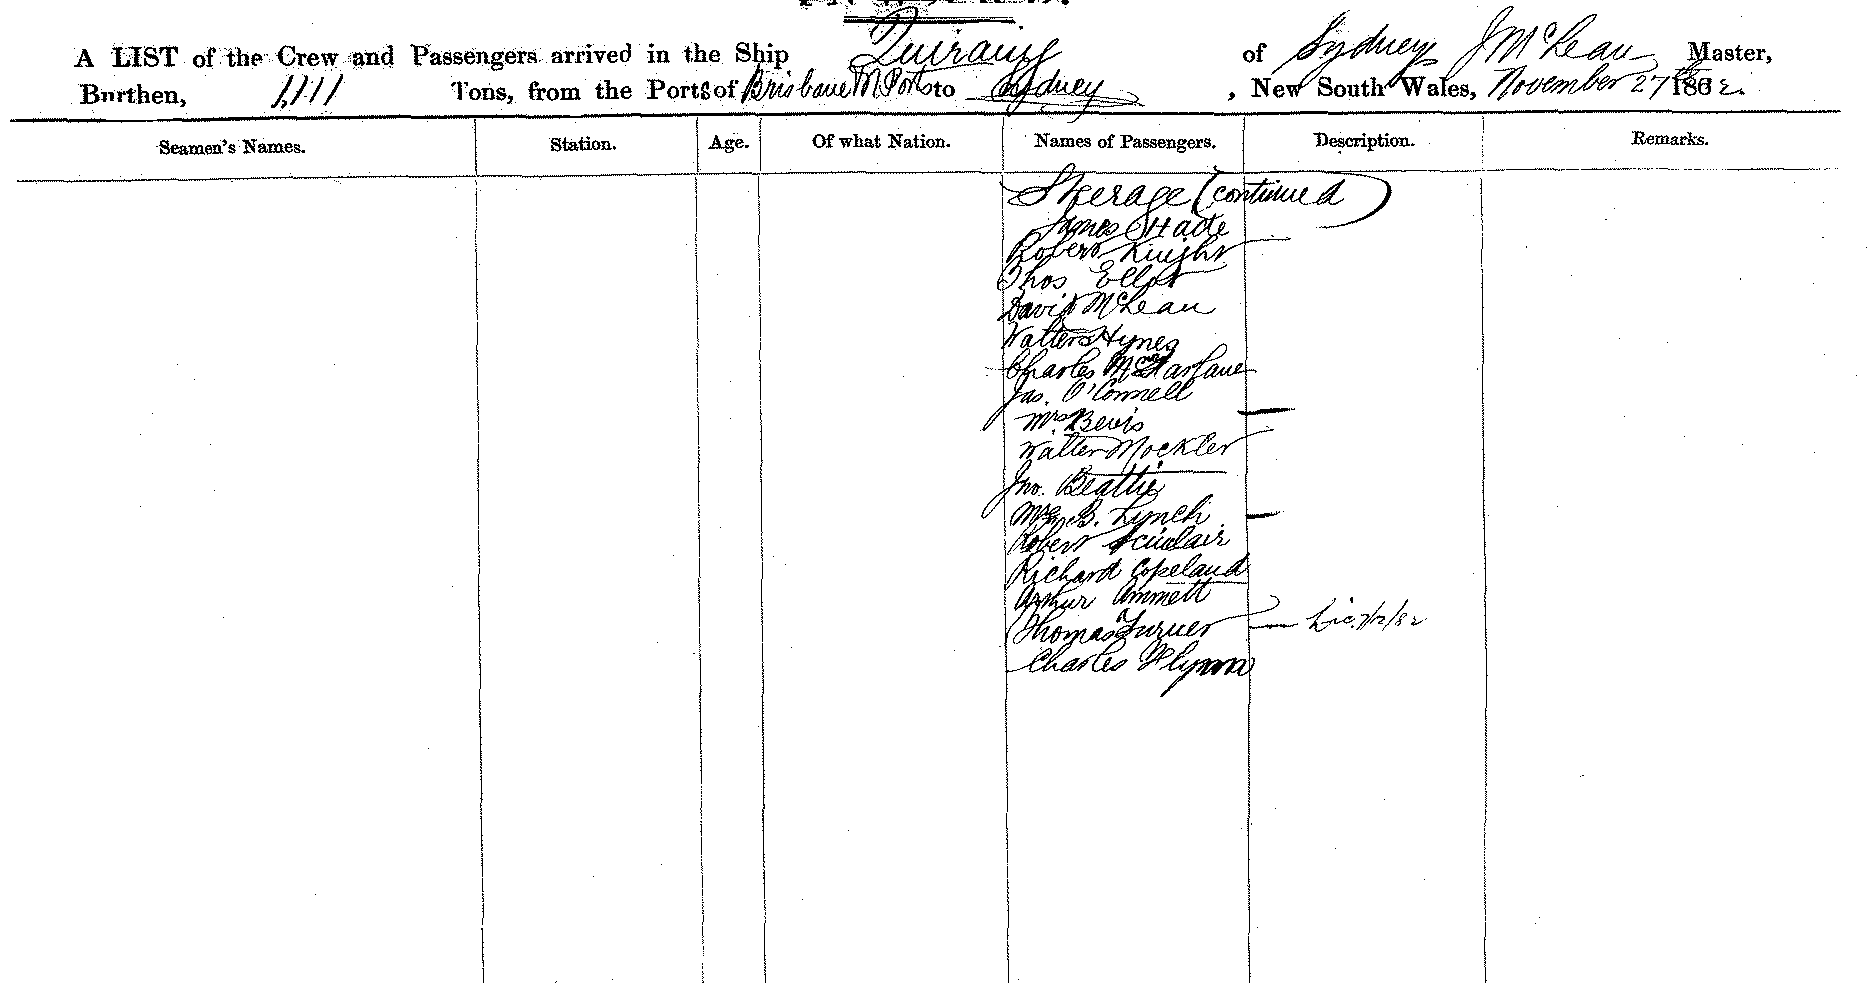 A LIST of the Crew and Passengers arrived in the Ship Quiraing of Sydney J McLean Master,
Burthen, 1,111 Tons, from the Ports of Brisbane M Ports to Sydney, New South Wales, November 27th 1882.
Seamen's Names. Station. Age. Of what Nation. Names of Passengers. Description. Remarks.
Steerage (continued)
James
Robert Knight
Thos
David McLean
Walter Hynes
Charles McFarlane
Jas. O'Connell
Mrs Bevis
Walter Mockler
Jno. Beattie
B. Lynch
Robert Sinclair
Richard Copeland
Arthur Ammett
Thomas Turner — Lic. 7/12/82
Charles Flynn